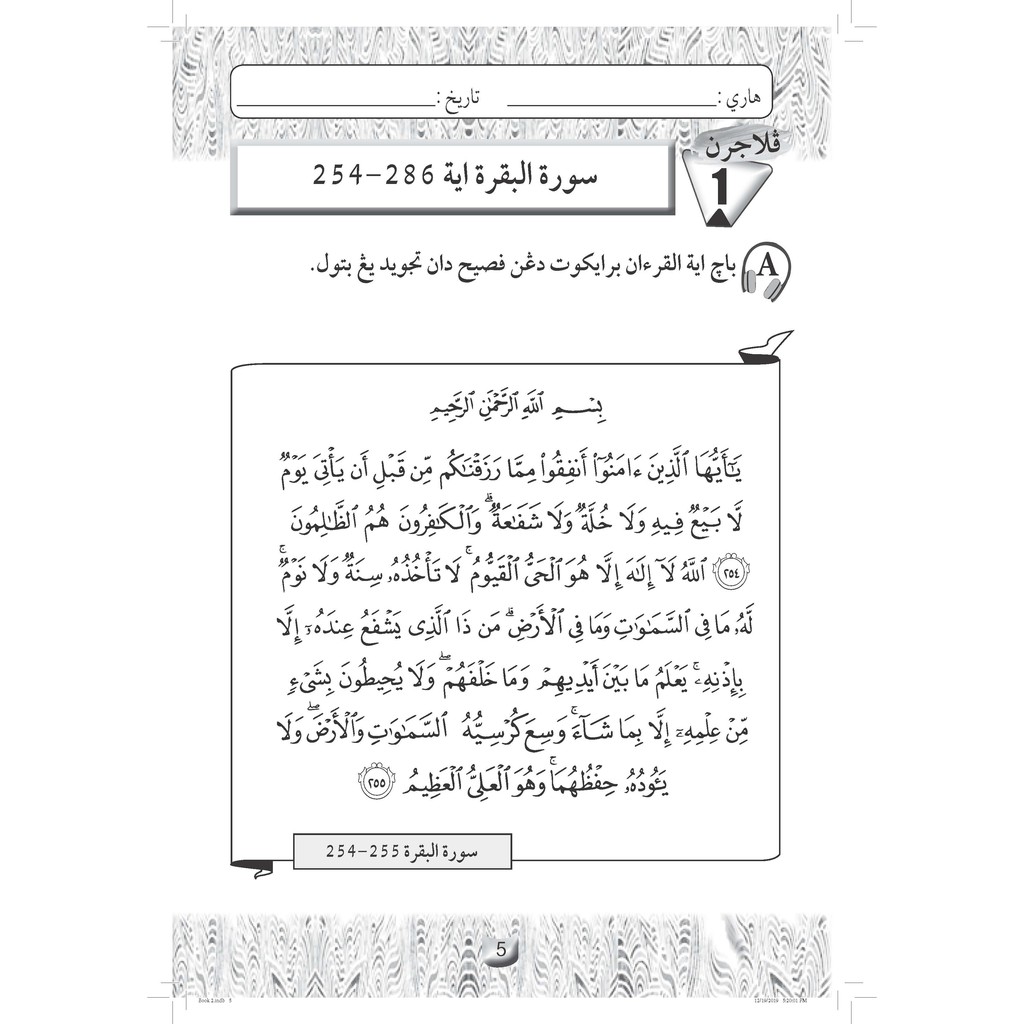 هاري : ____________________ تاريخ : ____________________
ڤلاجرن
1
سورة البقرة اية 286–254
A
باچ اية القرءان برايكوت دڠن فصيح دان تجويد يڠ بتول.
بِسْمِ ٱللَّهِ ٱلرَّحْمَٰنِ ٱلرَّحِيمِ
يَٰٓأَيُّهَا ٱلَّذِينَ ءَامَنُوٓا۟ أَنفِقُوا۟ مِمَّا رَزَقْنَٰكُم مِّن قَبْلِ أَن يَأْتِىَ يَوْمٌ
لَّا بَيْعٌ فِيهِ وَلَا خُلَّةٌ وَلَا شَفَٰعَةٌ ۗ وَٱلْكَٰفِرُونَ هُمُ ٱلظَّٰلِمُونَ
﴿٢٥٤﴾ ٱللَّهُ لَآ إِلَٰهَ إِلَّا هُوَ ٱلْحَىُّ ٱلْقَيُّومُ ۚ لَا تَأْخُذُهُۥ سِنَةٌ وَلَا نَوْمٌ ۚ
لَّهُۥ مَا فِى ٱلسَّمَٰوَٰتِ وَمَا فِى ٱلْأَرْضِ ۗ مَن ذَا ٱلَّذِى يَشْفَعُ عِندَهُۥٓ إِلَّا
بِإِذْنِهِۦ ۚ يَعْلَمُ مَا بَيْنَ أَيْدِيهِمْ وَمَا خَلْفَهُمْ ۖ وَلَا يُحِيطُونَ بِشَىْءٍ
مِّنْ عِلْمِهِۦٓ إِلَّا بِمَا شَآءَ ۚ وَسِعَ كُرْسِيُّهُ ٱلسَّمَٰوَٰتِ وَٱلْأَرْضَ ۖ وَلَا
يَـُٔودُهُۥ حِفْظُهُمَا ۚ وَهُوَ ٱلْعَلِىُّ ٱلْعَظِيمُ ﴿٢٥٥﴾
سورة البقرة 255–254
5
Book 2.indb 5
12/19/2019 5:20:01 PM